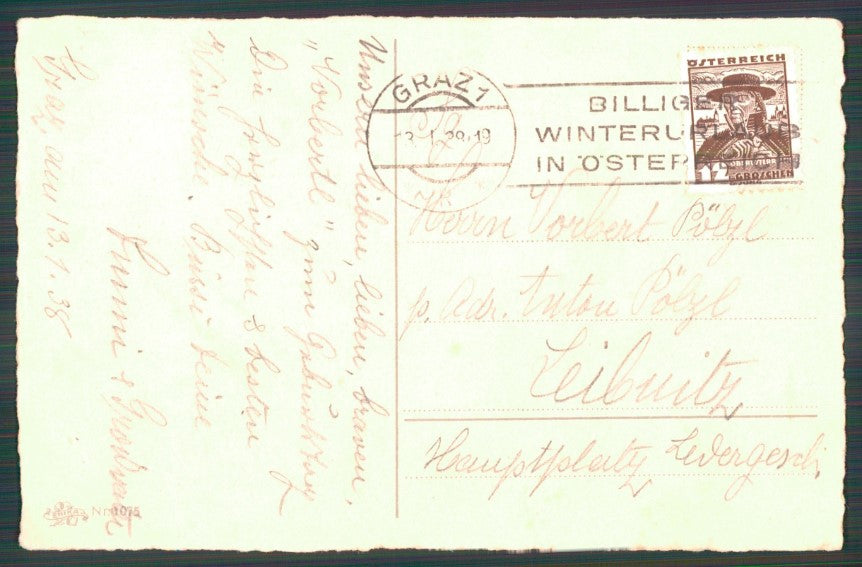 Graz, am 13.1.38
Unsern lieben, lieben, braven,
"Norbertl" zum Geburtstag
Die herzlichsten & besten
Wünsche. Bussi Deine
&
GRAZ 1
BILLIGER
WINTERURLAUB
IN ÖSTERREICH
ÖSTERREICH
GROSCHEN
Herrn Norbert Pölzl
p. Adr. Anton Pölzl
Leibnitz
Hauptplatz Ledergesch.
Nr. 1075